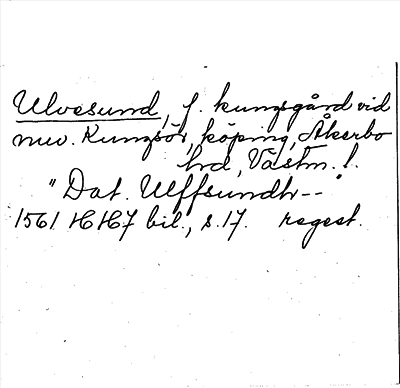 Ulvesund, f. kungsgård vid
nuv. Kungsör, köping, Åkerbo
hrd, Västm. l.
"Dat. Ulffsundh--"
1561 HH7 bil., s. 17. regest.